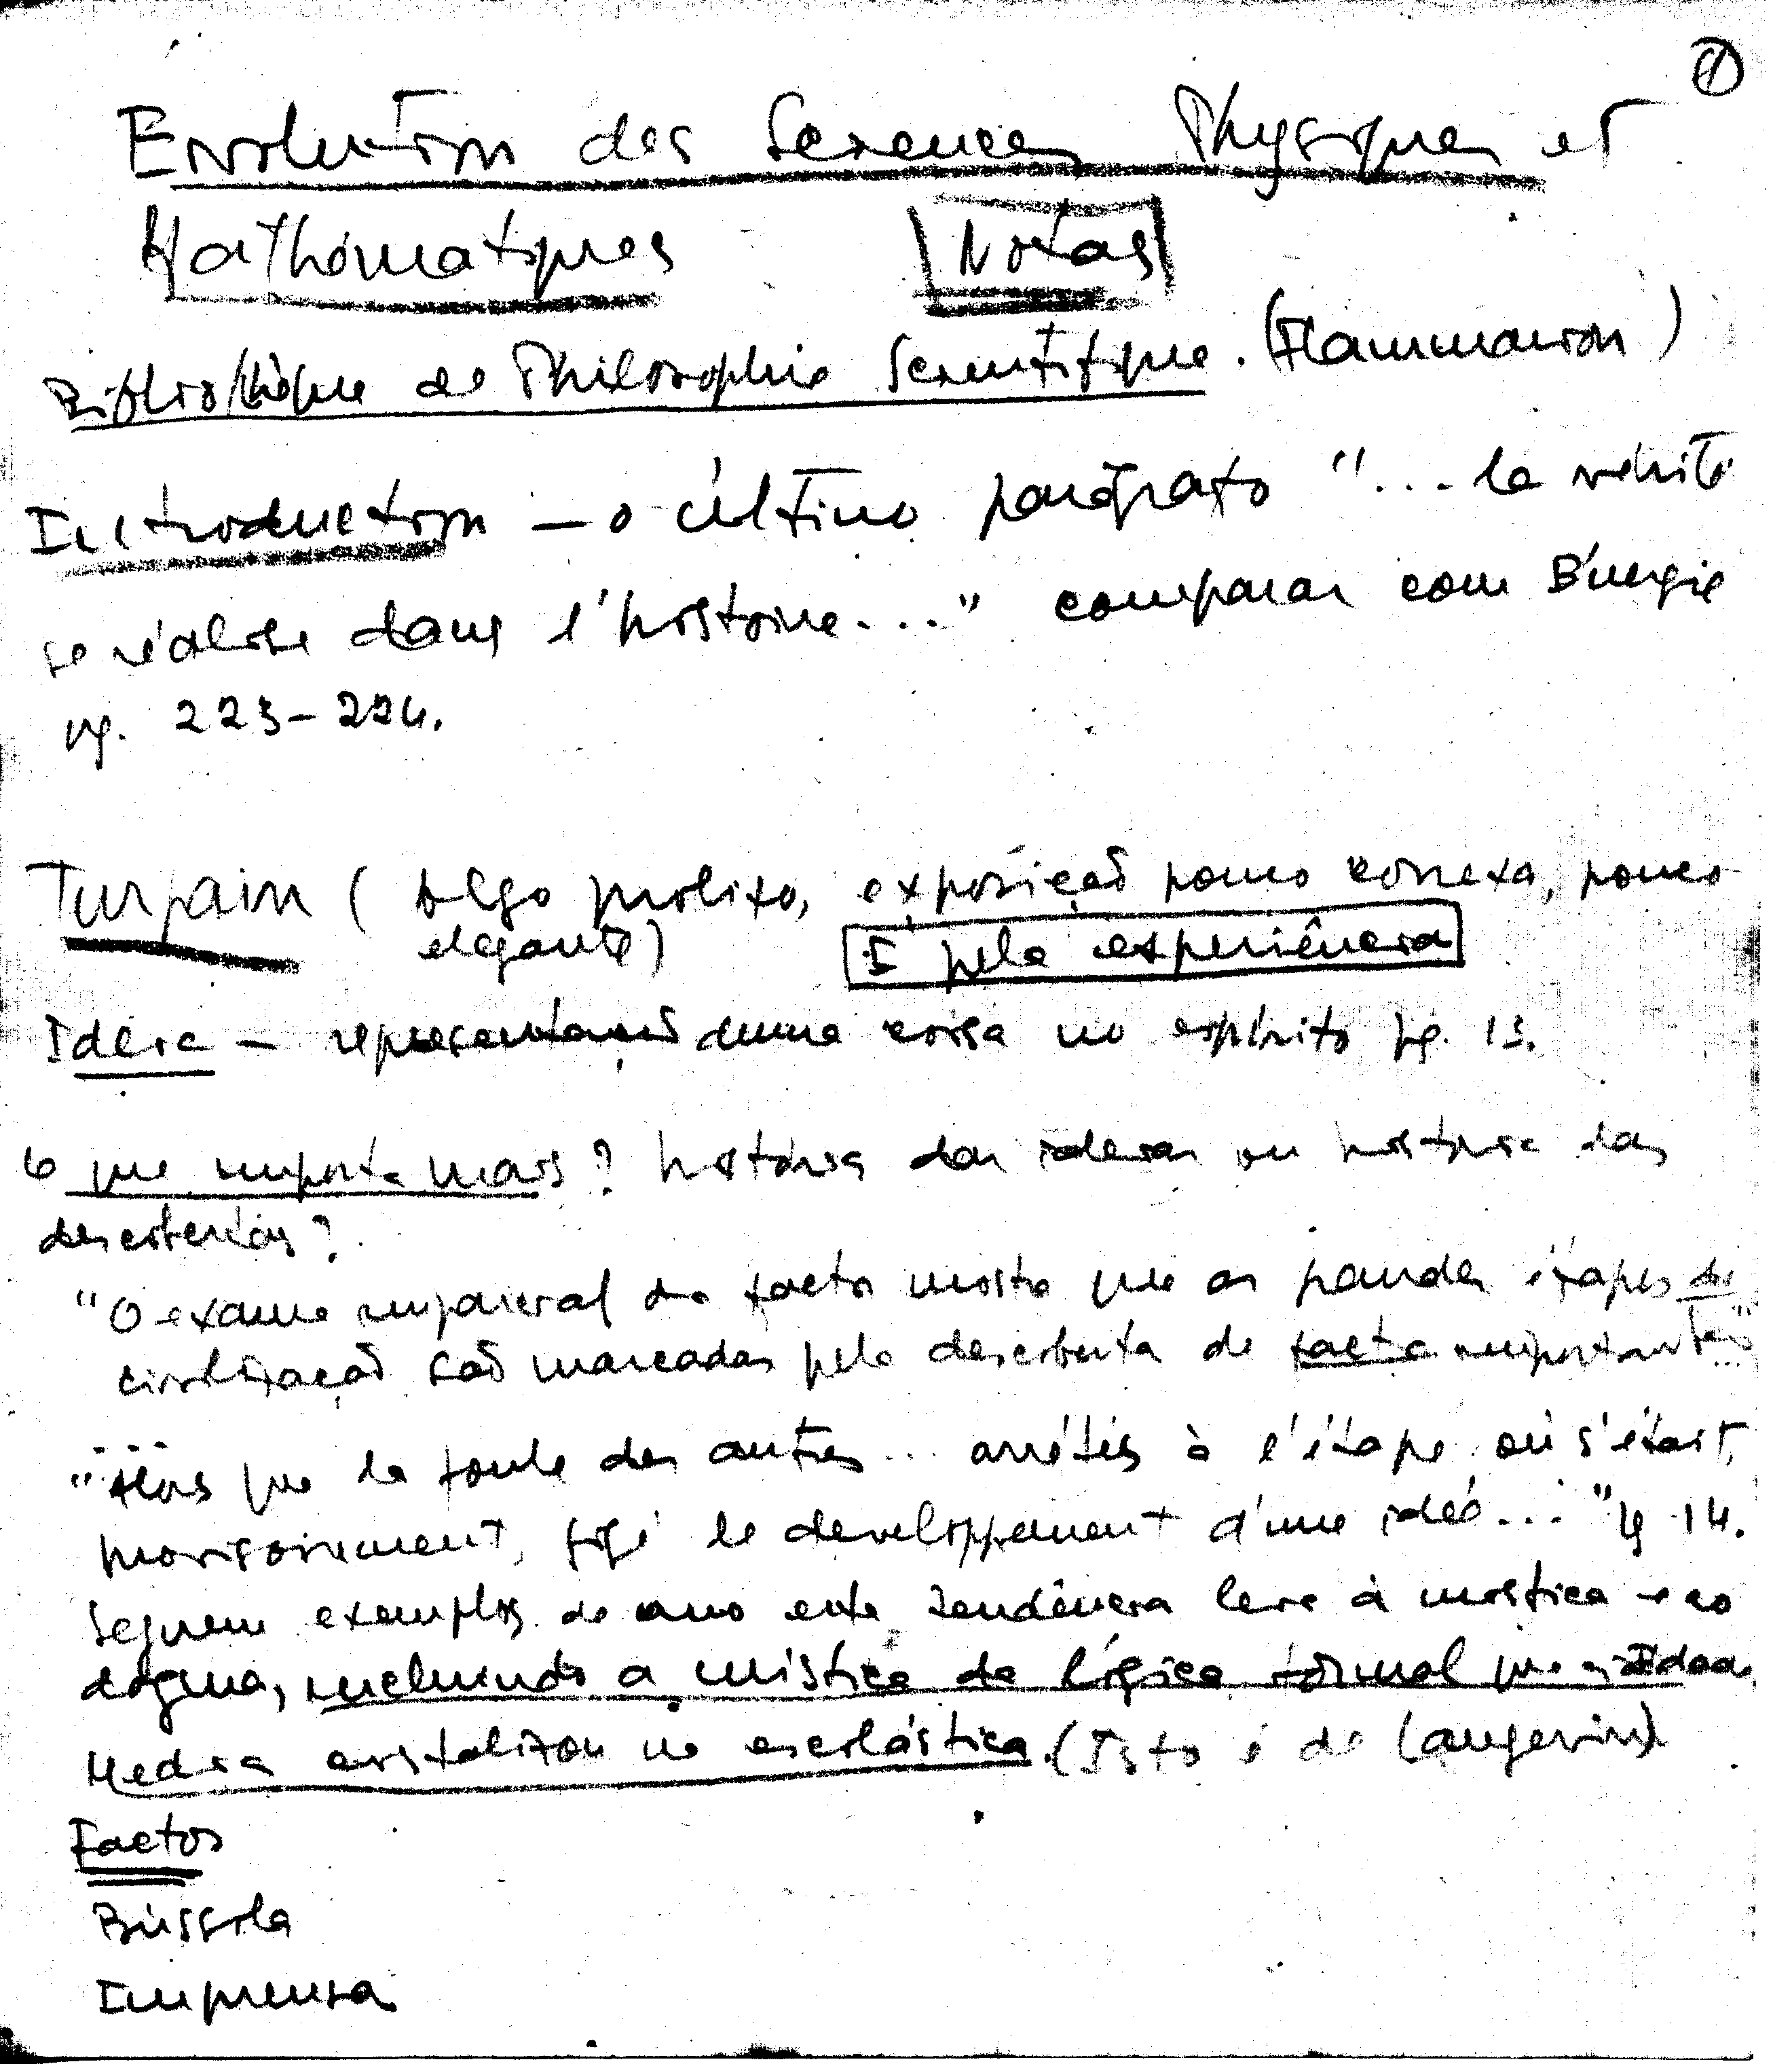 1
Evolution des Sciences Physiques et
Mathématiques Notas
Bibliothèque de Philosophie Scientifique. (Flammarion)
Introduction — o último parágrafo "... la vérité
se réalise dans l'histoire..." comparar com
pg. 223-224.
Turpain (Algo prolixo, exposição pouco conexa, pouco
elegante) I pela experiência
Ideia — representação duma coisa no espírito pg. 13.
O que importa mais? história das ideias ou história das
descobertas?
"O exame imparcial dos factos mostra que as grandes étapes da
civilização são marcadas pela descoberta de facto importantes"
...
"Alors que la foule des autres... arrêtés à l'étape où s'était,
provisoirement, figé le developpement d'une idée..." pg. 14.
Seguem exemplos de como esta tendência leva à mística e ao
dogma, incluindo a mística da lógica formal que a Idade
Media cristalizou na escolástica. (Isto é de Langevin)
Factos
Bússola
Imprensa